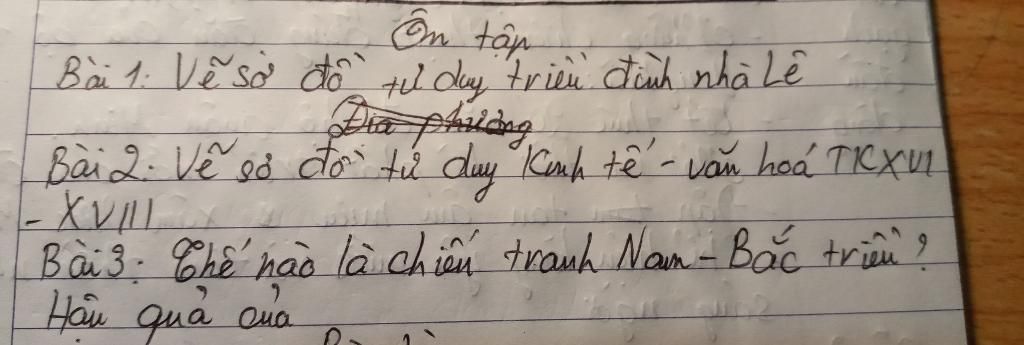 Ôn tập
Bài 1: Vẽ sơ đồ tư duy triều đình nhà Lê
Địa phương
Bài 2: Vẽ sơ đồ tư duy Kinh tế - văn hoá TK XVI
- XVIII
Bài 3: Thế nào là chiến tranh Nam - Bắc triều?
Hậu quả của